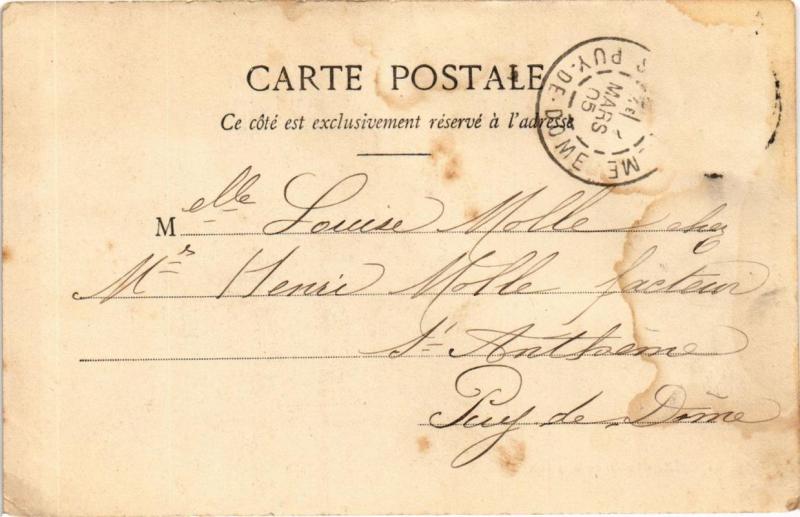 CARTE POSTALE
Ce côté est exclusivement réservé à l'adresse
PUY-DE-DOME
MARS
05
Melle Louise Molle chez
Mr Henri Molle facteur
St Anthème
Puy de Dôme